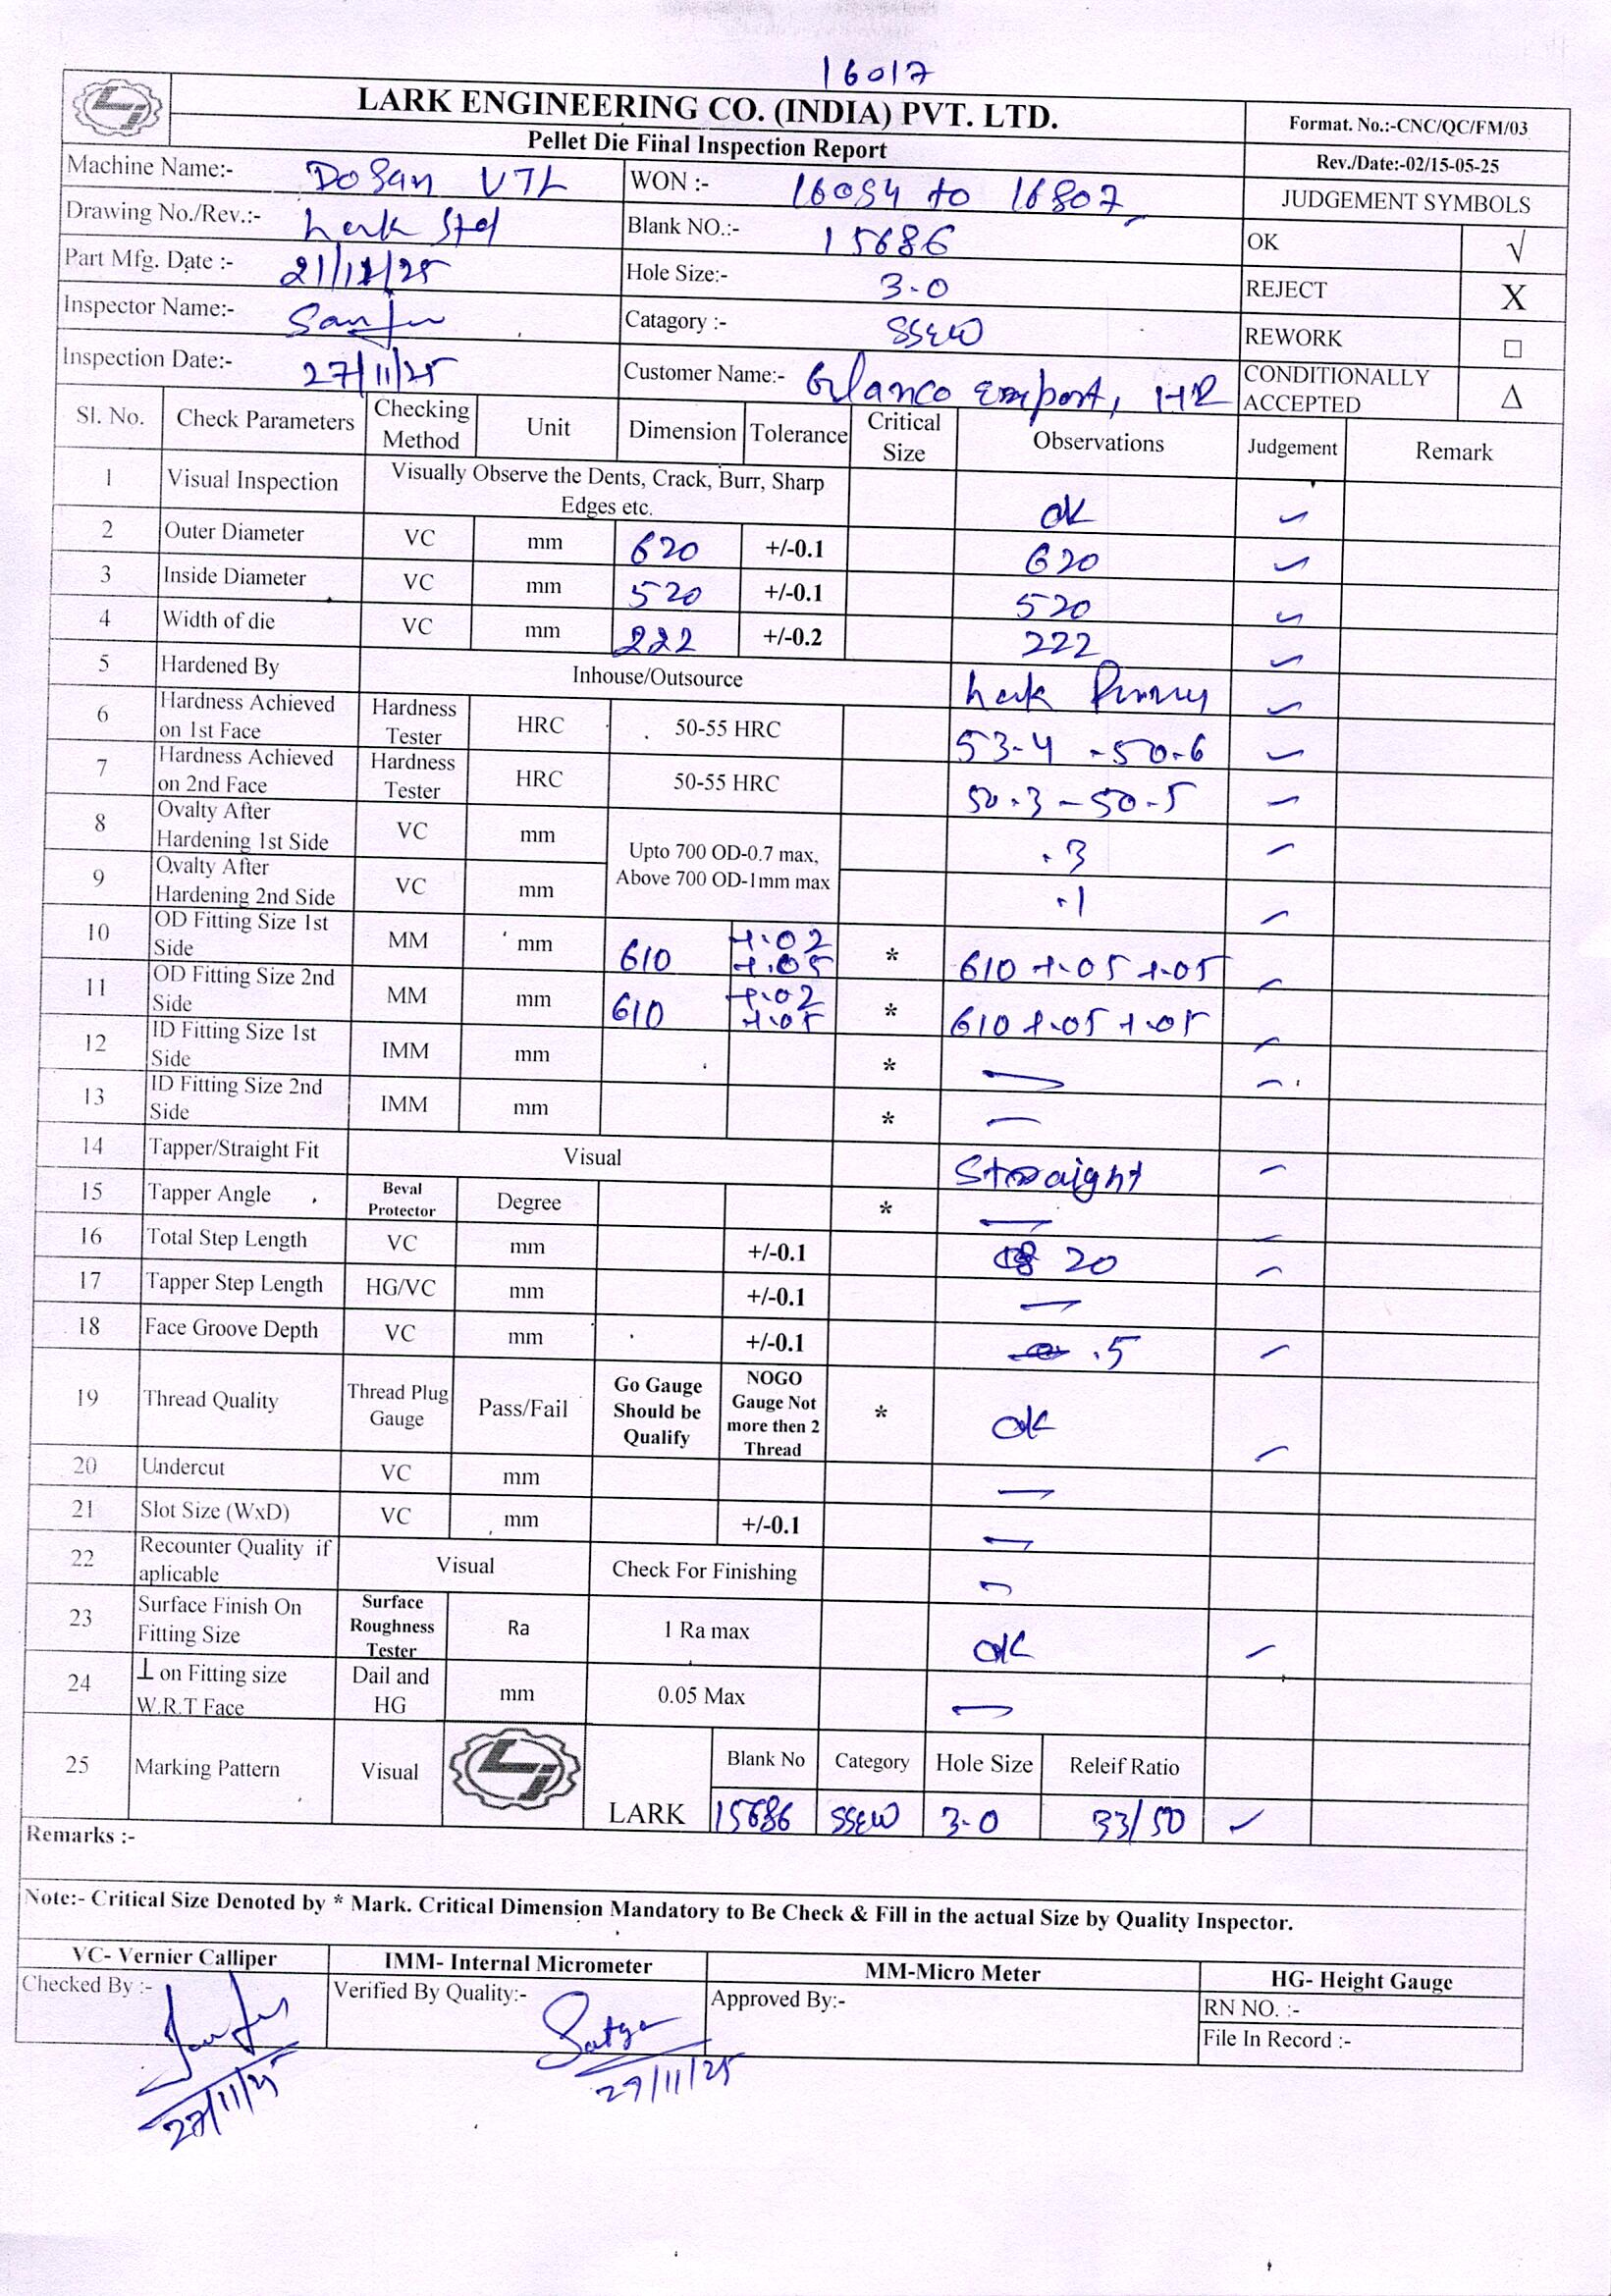 16017
LARK ENGINEERING CO. (INDIA) PVT. LTD.
Pellet Die Fiinal Inspection Report
Format. No.:-CNC/QC/FM/03
Rev./Date:-02/15-05-25
Machine Name:- DoSan VTL
WON :- 16054 to 16807
JUDGEMENT SYMBOLS
Drawing No./Rev.:- Lark Std
Blank NO.:- 15686
OK √
Part Mfg. Date :- 21/11/25
Hole Size:- 3.0
REJECT X
Inspector Name:- Sanju
Catagory :- SSEW
REWORK □
Inspection Date:- 27/11/25
Customer Name:- Glanco Export, HR
CONDITIONALLY ACCEPTED Δ
Sl. No. Check Parameters Checking Method Unit Dimension Tolerance Critical Size Observations Judgement Remark
1 Visual Inspection Visually Observe the Dents, Crack, Burr, Sharp Edges etc. ok
2 Outer Diameter VC mm 620 +/-0.1 620
3 Inside Diameter VC mm 520 +/-0.1 520
4 Width of die VC mm 222 +/-0.2 222
5 Hardened By Inhouse/Outsource Lark
6 Hardness Achieved on 1st Face Hardness Tester HRC 50-55 HRC 53-4 - 50-6
7 Hardness Achieved on 2nd Face Hardness Tester HRC 50-55 HRC 50.3 - 50-5
8 Ovalty After Hardening 1st Side VC mm Upto 700 OD-0.7 max, Above 700 OD-1mm max .3
9 Ovalty After Hardening 2nd Side VC mm .1
10 OD Fitting Size 1st Side MM mm 610 +.02 +.05 * 610 +.05 +.05
11 OD Fitting Size 2nd Side MM mm 610 +.02 +.05 * 610 +.05 +.05
12 ID Fitting Size 1st Side IMM mm * —
13 ID Fitting Size 2nd Side IMM mm * —
14 Tapper/Straight Fit Visual Straight
15 Tapper Angle Beval Protector Degree * —
16 Total Step Length VC mm +/-0.1 20
17 Tapper Step Length HG/VC mm +/-0.1 —
18 Face Groove Depth VC mm +/-0.1 .5
19 Thread Quality Thread Plug Gauge Pass/Fail Go Gauge Should be Qualify NOGO Gauge Not more then 2 Thread * ok
20 Undercut VC mm —
21 Slot Size (WxD) VC mm +/-0.1 —
22 Recounter Quality if aplicable Visual Check For Finishing —
23 Surface Finish On Fitting Size Surface Roughness Tester Ra 1 Ra max ok
24 ⊥ on Fitting size W.R.T Face Dail and HG mm 0.05 Max —
25 Marking Pattern Visual LARK Blank No Category Hole Size Releif Ratio
15686 SSEW 3.0 33/50
Remarks :-
Note:- Critical Size Denoted by * Mark. Critical Dimension Mandatory to Be Check & Fill in the actual Size by Quality Inspector.
VC- Vernier Calliper IMM- Internal Micrometer MM-Micro Meter HG- Height Gauge
Checked By :- Verified By Quality:- Satya Approved By:- RN NO. :-
File In Record :-
27/11/25 27/11/25